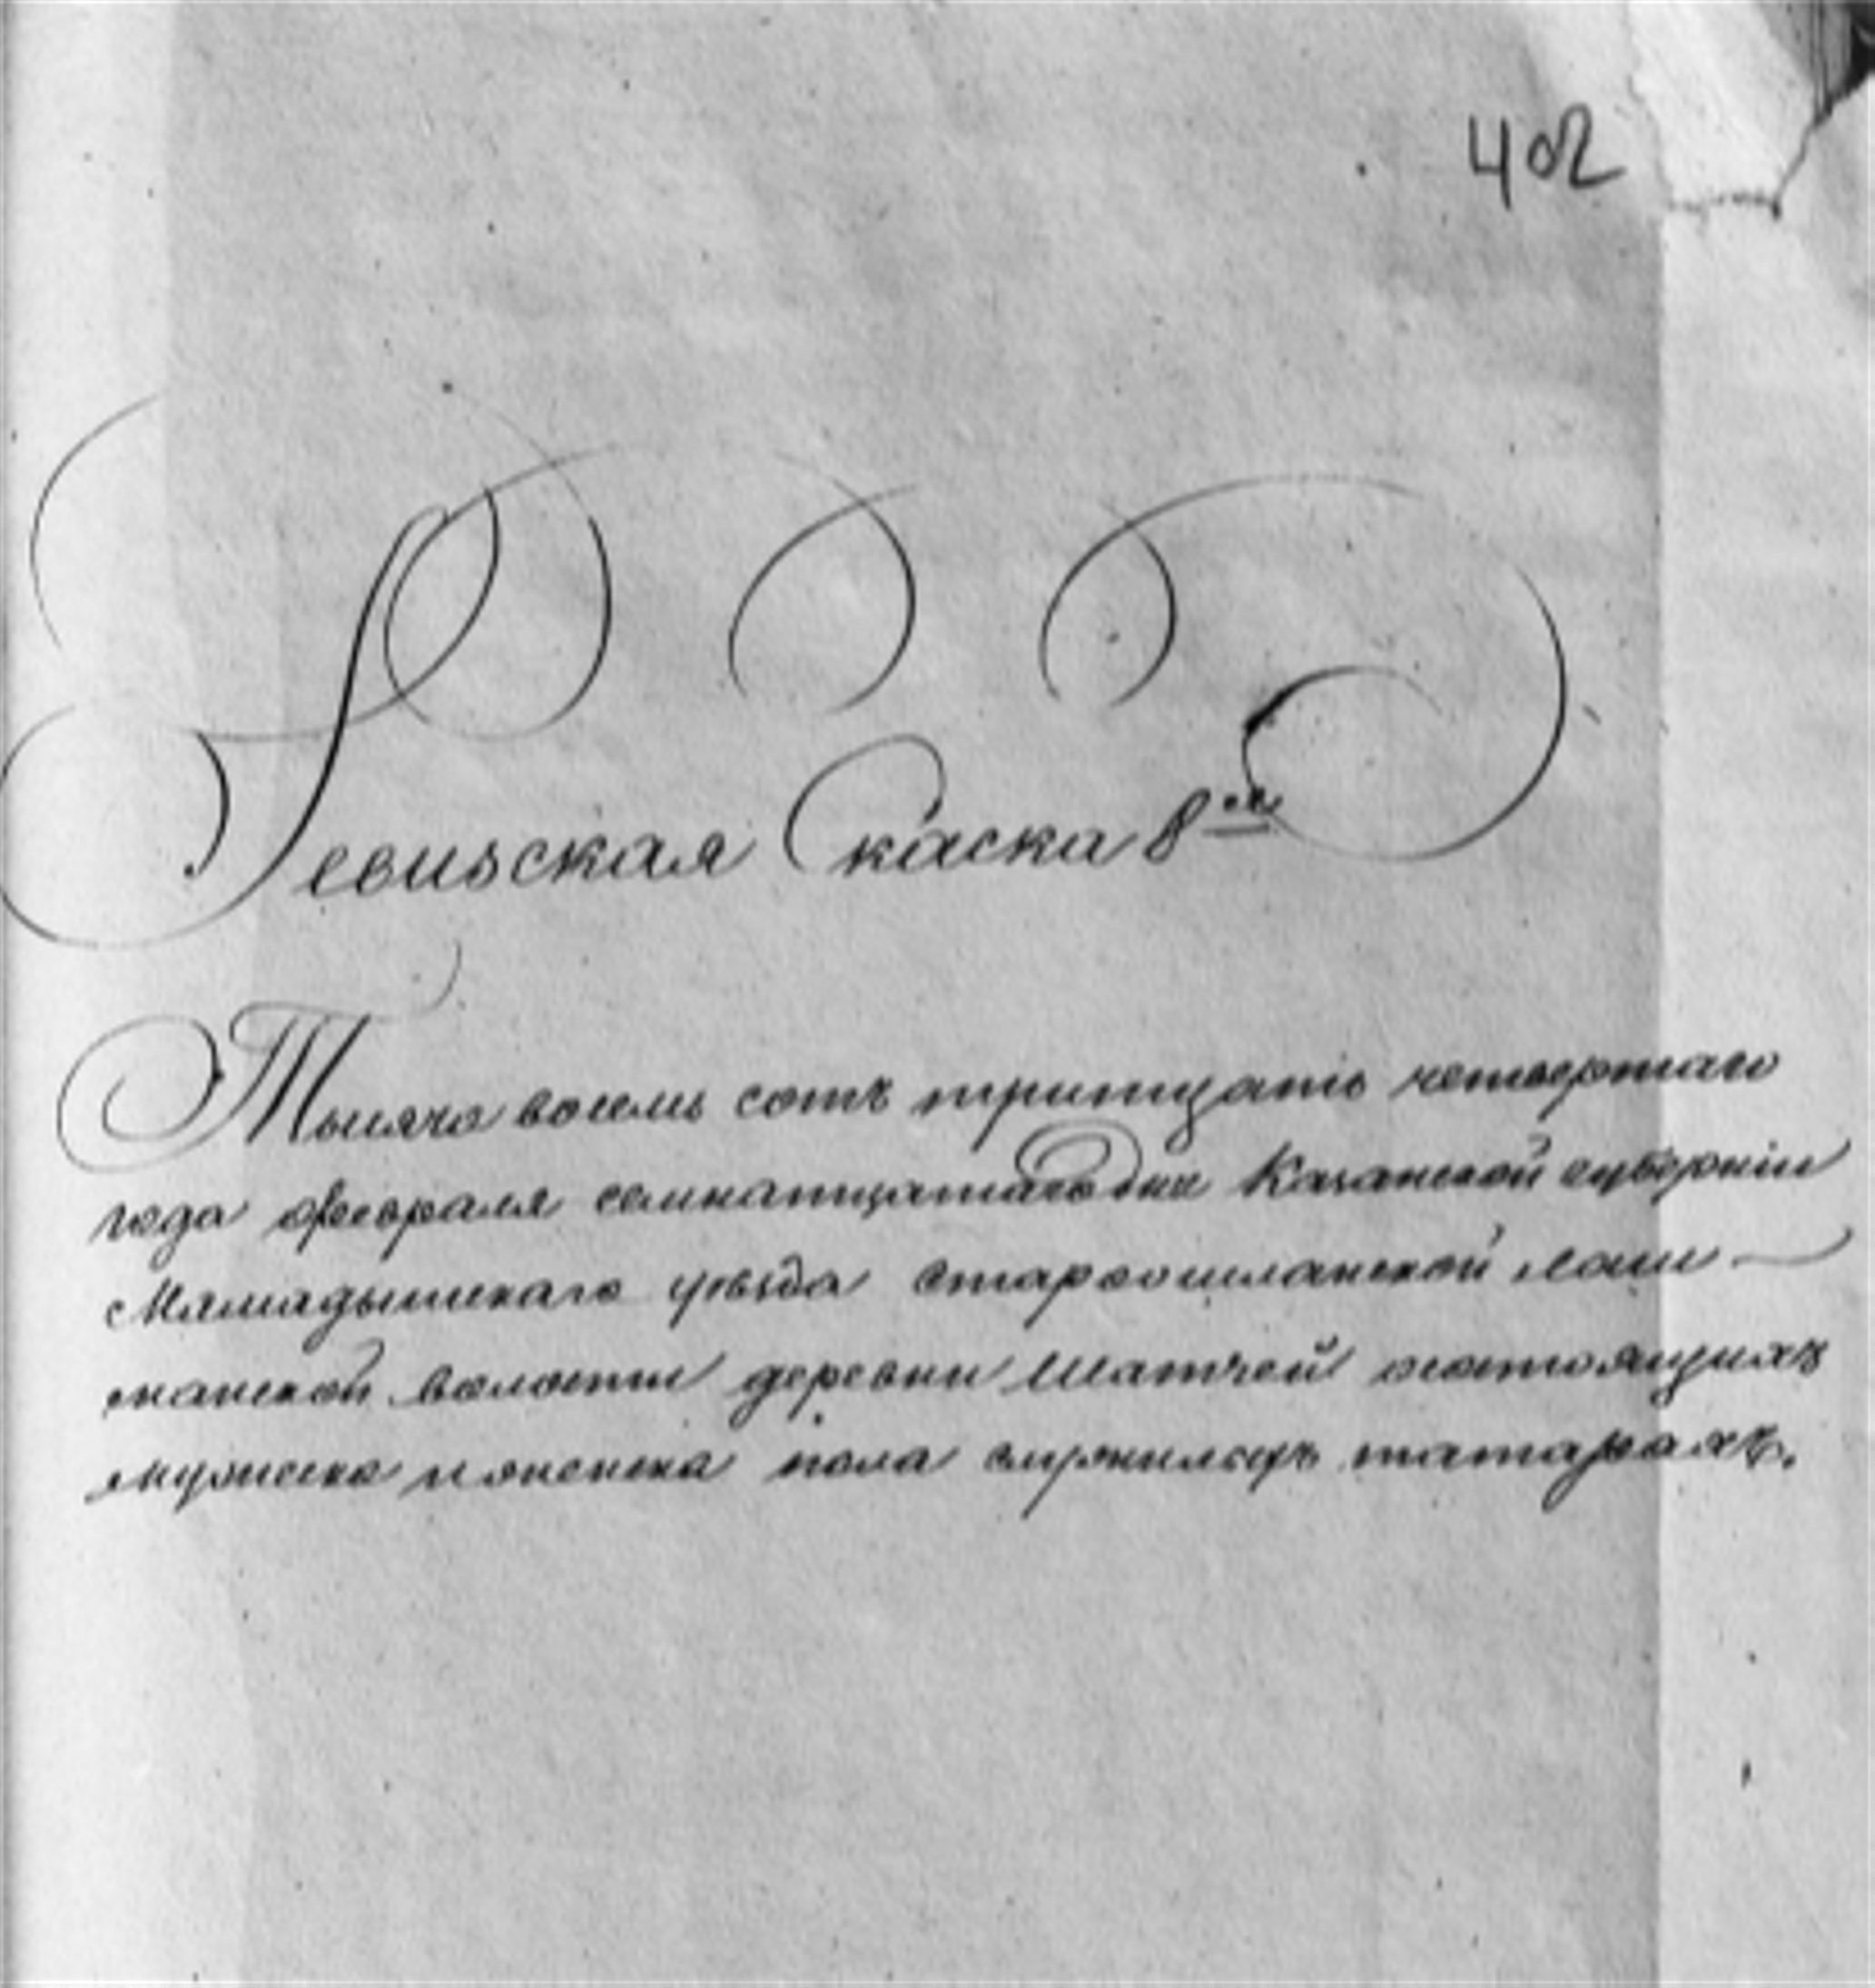 402
Ревизская Скаска 8ая
Тысяча восемь сотъ тритцать четвертаго
года февраля семнатцатаго дня Казанской губернiи
Мамадышскаго уѣзда Староошланской лаш-
манской волости деревни Шатчей состоящихъ
мужеска и женска пола служилыхъ татарахъ.